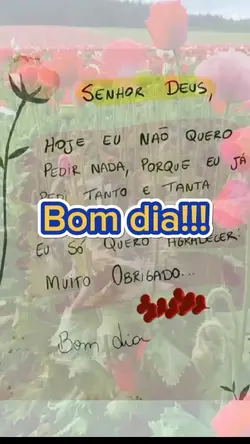 SENHOR DEUS,
HOJE EU NÃO QUERO
PEDIR NADA, PORQUE EU JÁ
PEDI TANTO E TANTA
Bom dia!!!
EU SÓ QUERO AGRADECER:
MUITO OBRIGADO...
Bom dia